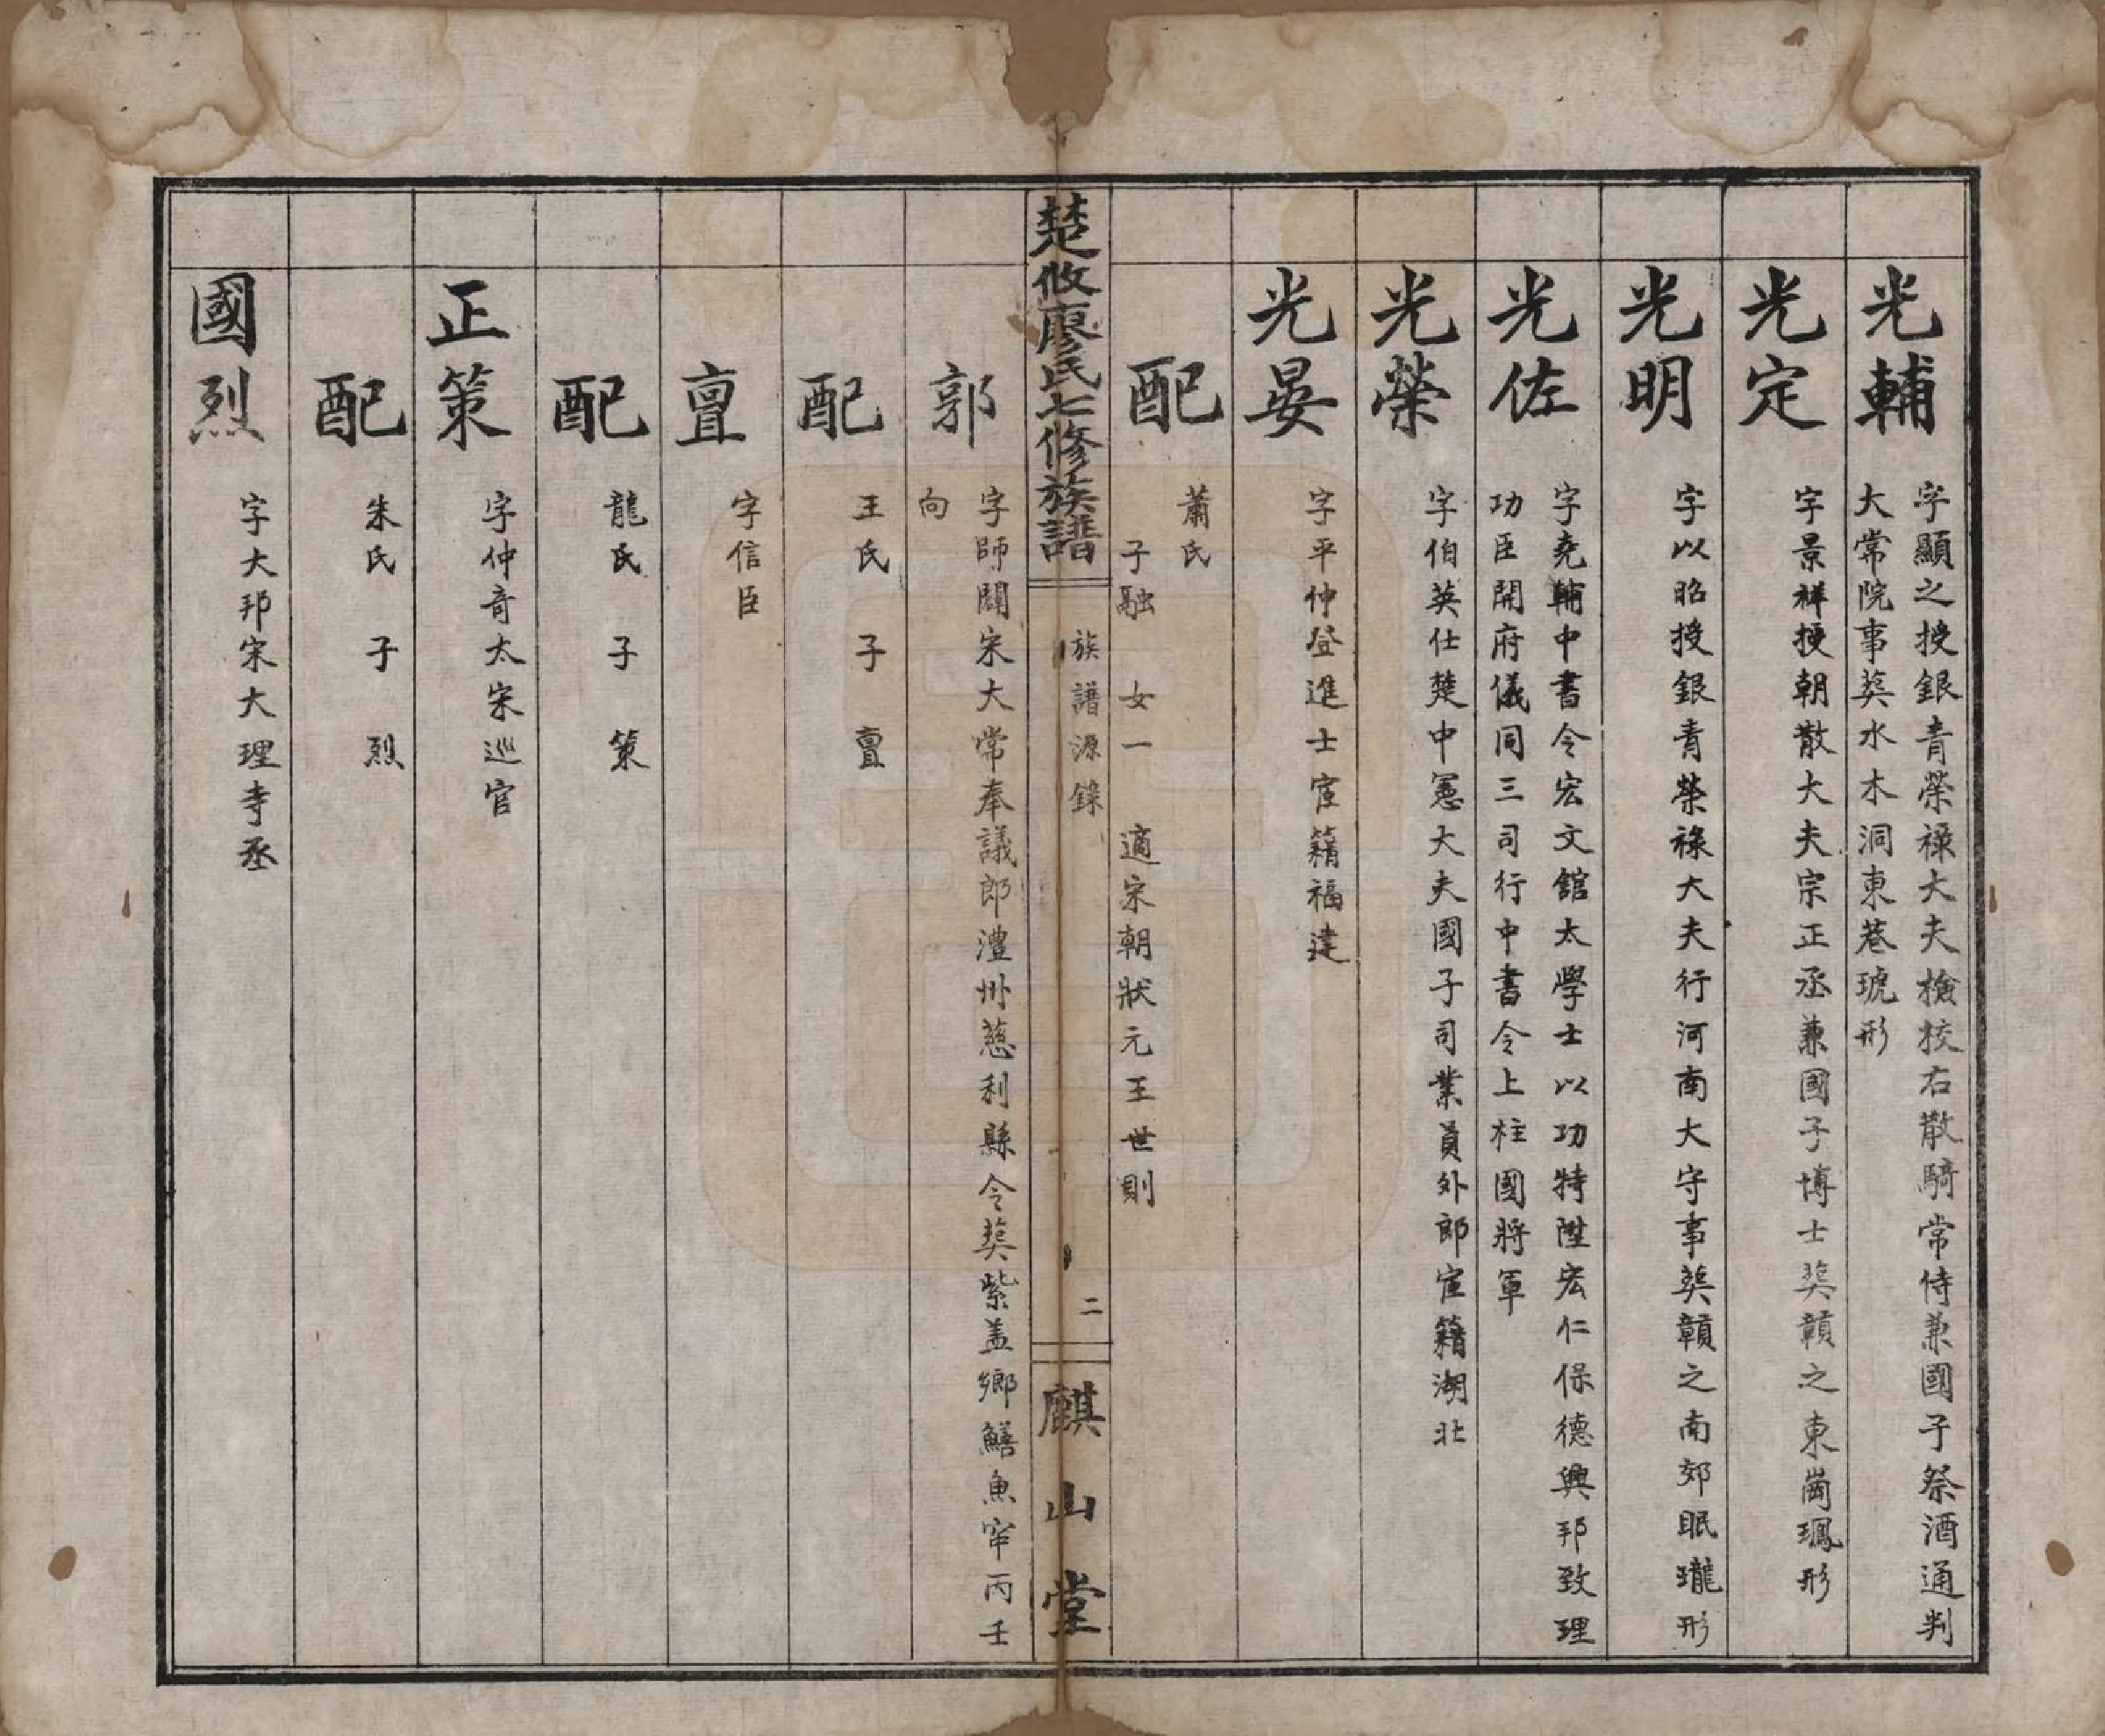 光輔
字顯之授銀青榮祿大夫檢校右散騎常侍兼國子祭酒通判
大常院事葬水木洞東巷琥形
光定
字景祥授朝散大夫宗正丞兼國子博士葬贛之東崗瑦形
光明
字以昭授銀青榮祿大夫行河南大守事葬贛之南郊眠瓏形
光佐
字堯輔中書令宏文館太學士以功特陞宏仁保德興邦致理
功臣開府儀同三司行中書令上柱國將軍
光榮
字伯英仕楚中憲大夫國子司業員外郎宦籍湖北
光晏
字平仲登進士宦籍福建
配
蕭氏
子融 女一 適宋朝狀元王世則
楚攸廖氏七修族譜
族譜源錄
二
麒山堂
郭
字師闢宋大常奉議郎澧州慈利縣令葬紫盖鄉鱔魚窂丙壬
向
配
王氏 子 亶
亶
字信臣
配
龍氏 子 策
正策
字仲奇太宋巡官
配
朱氏 子 烈
國烈
字大邦宋大理寺丞